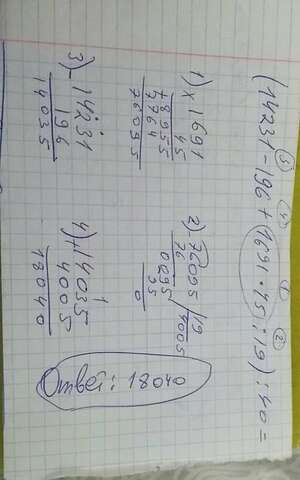 ③ ④ ① ②
(14231 - 196 + (1691 · 45 : 19) : 40 =
1) × 1691
45
+ 8455
6764
76095
2) 76095 | 19
76 4005
0095
95
0
3) - 14231
196
14035
4) + 14035
4005
18040
Ответ: 18040